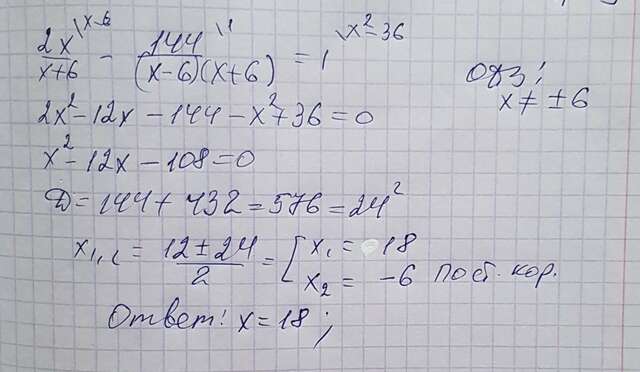 2x\x-6/x+6 - 144\1/(x-6)(x+6) = 1\x²-36
ОДЗ: x ≠ ±6
2x²-12x-144-x²+36=0
x²-12x-108=0
D=144+432=576=24²
x₁,₂ = 12±24/2 = [x₁ = 18
x₂ = -6 пост. кор.
Ответ: x=18;